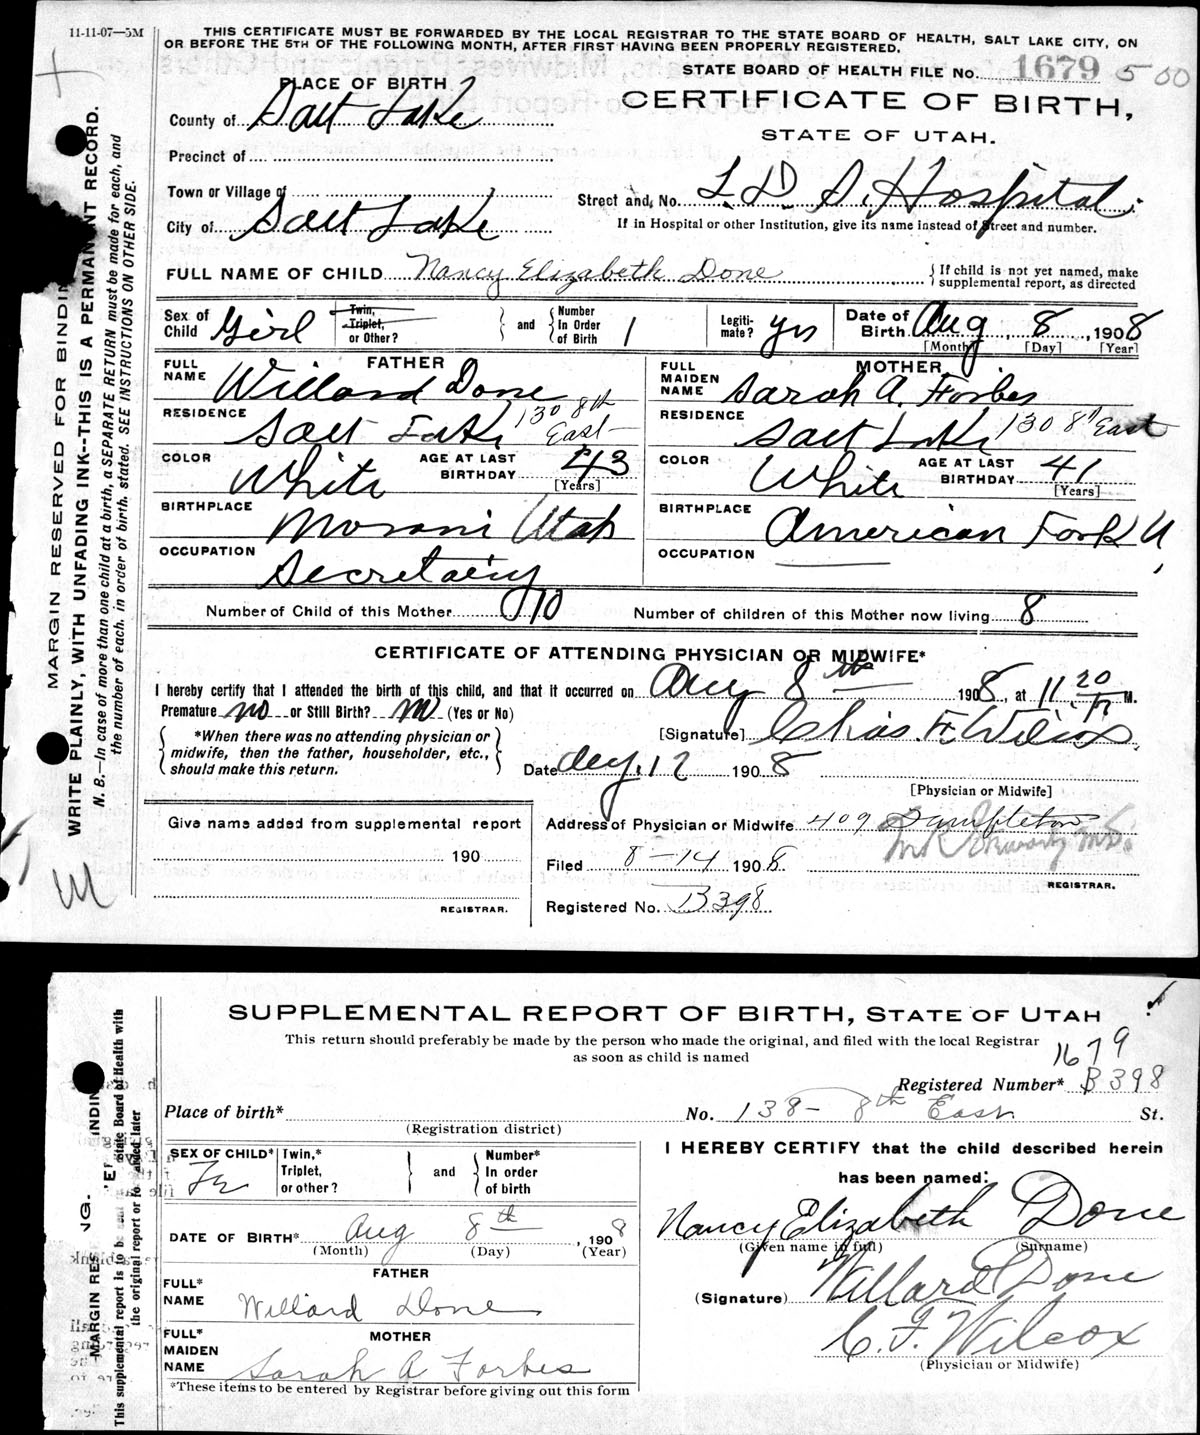 11-11-07—5M
THIS CERTIFICATE MUST BE FORWARDED BY THE LOCAL REGISTRAR TO THE STATE BOARD OF HEALTH, SALT LAKE CITY, ON
OR BEFORE THE 5TH OF THE FOLLOWING MONTH, AFTER FIRST HAVING BEEN PROPERLY REGISTERED.
STATE BOARD OF HEALTH FILE No. 1679 500
PLACE OF BIRTH
CERTIFICATE OF BIRTH,
STATE OF UTAH.
County of Salt Lake
Precinct of
Town or Village of
Street and No. L. D. S. Hospital
City of Salt Lake
If in Hospital or other Institution, give its name instead of Street and number.
FULL NAME OF CHILD Nancy Elizabeth Done
{ If child is not yet named, make
supplemental report, as directed
Sex of Child Girl
Twin, Triplet, or Other?
and
Number In Order of Birth 1
Legiti-mate? yes
Date of Birth Aug 8, 1908
[Month] [Day] [Year]
FATHER
FULL NAME Willard Done
RESIDENCE Salt Lake 130 8th East
COLOR White
AGE AT LAST BIRTHDAY 43
[Years]
BIRTHPLACE Moroni Utah
OCCUPATION Secretary
MOTHER
FULL MAIDEN NAME Sarah A. Forbes
RESIDENCE Salt Lake 130 8th East
COLOR White
AGE AT LAST BIRTHDAY 41
[Years]
BIRTHPLACE American Fork U,
OCCUPATION
Number of Child of this Mother 10
Number of children of this Mother now living 8
CERTIFICATE OF ATTENDING PHYSICIAN OR MIDWIFE*
I hereby certify that I attended the birth of this child, and that it occurred on Aug 8th 1908, at 11 20 M.
Premature no or Still Birth? (Yes or No)
*When there was no attending physician or
midwife, then the father, householder, etc.,
should make this return.
[Signature] Chas. F. Wilcox
Date Aug. 12 1908
[Physician or Midwife]
Give name added from supplemental report
190
REGISTRAR.
Address of Physician or Midwife 409 Templeton
Filed 8-14 1908
REGISTRAR.
Registered No. B398
MARGIN RESERVED FOR BINDIN
WRITE PLAINLY, WITH UNFADING INK--THIS IS A PERMANENT RECORD.
N. B.—In case of more than one child at a birth, a SEPARATE RETURN must be made for each, and
the number of each, in order of birth, stated. SEE INSTRUCTIONS ON OTHER SIDE.
SUPPLEMENTAL REPORT OF BIRTH, STATE OF UTAH
This return should preferably be made by the person who made the original, and filed with the local Registrar
as soon as child is named
1679
Registered Number* B398
Place of birth*
No. 138- 8th East St.
(Registration district)
SEX OF CHILD* Fe
Twin,* Triplet, or other?
and
Number* In order of birth
DATE OF BIRTH* Aug 8th, 1908
(Month) (Day) (Year)
FATHER
FULL* NAME Willard Done
MOTHER
FULL* MAIDEN NAME Sarah A Forbes
*These items to be entered by Registrar before giving out this form
I HEREBY CERTIFY that the child described herein
has been named:
Nancy Elizabeth Done
(Given name in full) (Surname)
(Signature) Willard Done
C. F. Wilcox
(Physician or Midwife)
This supplemental report is to be sent State Board of Health with
the original report or fo ded later